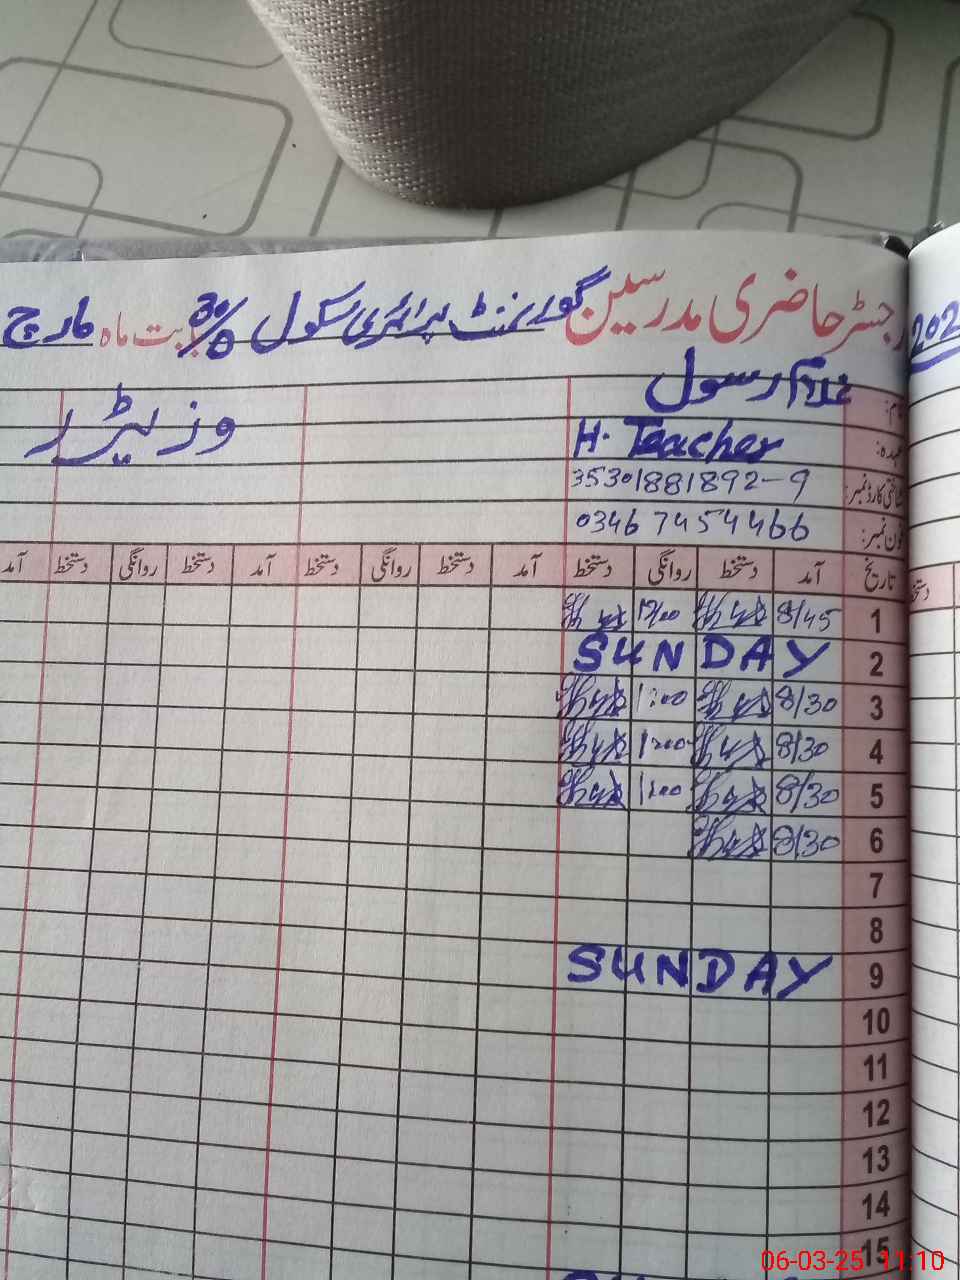 رجسٹر حاضری مدرسین گورنمنٹ پرائمری سکول 30/D بابت ماہ مارچ
202
نام: غلام رسول
عہدہ: H. Teacher
شناختی کارڈ نمبر: 35301881892-9
فون نمبر: 0346 7454466
وزیٹر
تاریخ آمد دستخط روانگی دستخط آمد دستخط روانگی دستخط آمد دستخط روانگی دستخط آمد
1 8/45 12/00
2 SUNDAY
3 8/30 1:00
4 8/30 1:00
5 8/30 1:00
6 8/30
7
8
9 SUNDAY
10
11
12
13
14
15
06-03-25 11:10